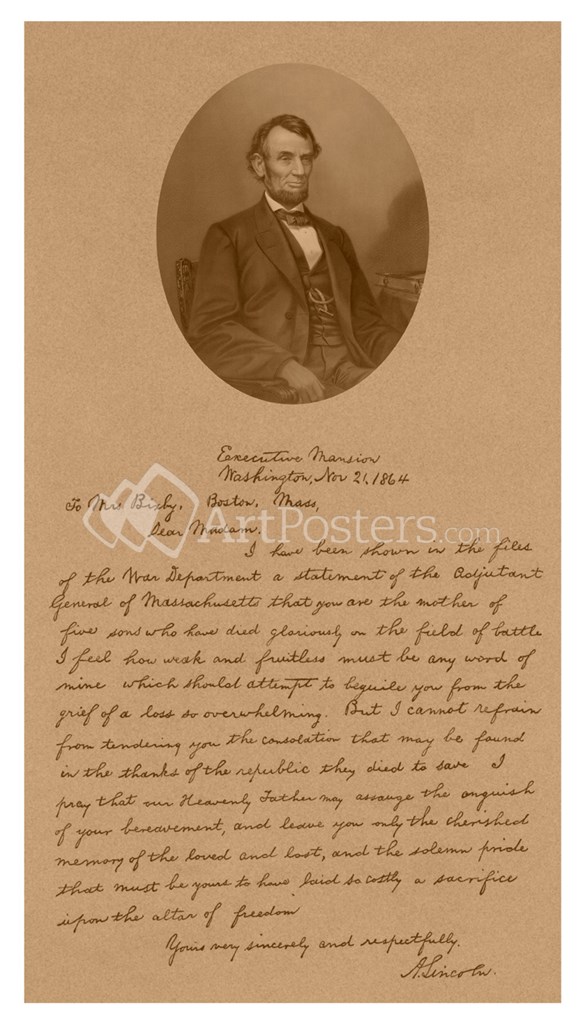 Executive Mansion
Washington, Nov 21, 1864
To Mrs Bixby, Boston, Mass,
Dear Madam.
ArtPosters.com
I have been shown in the files
of the War Department a statement of the Adjutant
General of Massachusetts that you are the mother of
five sons who have died gloriously on the field of battle
I feel how weak and fruitless must be any word of
mine which should attempt to beguile you from the
grief of a loss so overwhelming. But I cannot refrain
from tendering you the consolation that may be found
in the thanks of the republic they died to save I
pray that our Heavenly Father may assauge the anguish
of your bereavement, and leave you only the cherished
memory of the loved and lost, and the solemn pride
that must be yours to have laid so costly a sacrifice
upon the altar of freedom
Yours very sincerely and respectfully.
A. Lincoln.